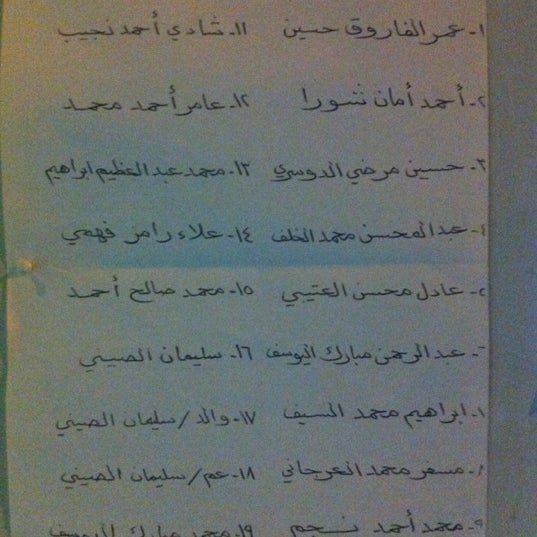 ١- عمر الفاروق حسين
٢- أحمد أمان شورا
٣- حسين مرضي الدوسري
٤- عبدالمحسن محمد الخلف
عادل محسن العتيبي
٦- عبدالرحمن مبارك اليوسف
ابراهيم محمد السيف
مسفر محمد العرجاني
٩- محمد أحمد نجم
١١- شادي أحمد نجيب
١٢- عامر أحمد محمد
١٣- محمد عبدالعظيم ابراهيم
١٤- علاء رامز فهمي
١٥- محمد صالح أحمد
١٦- سليمان الصيني
١٧- والد/سليمان الصيني
١٨- عم/سليمان الصيني
١٩- محمد مبارك اليوسف